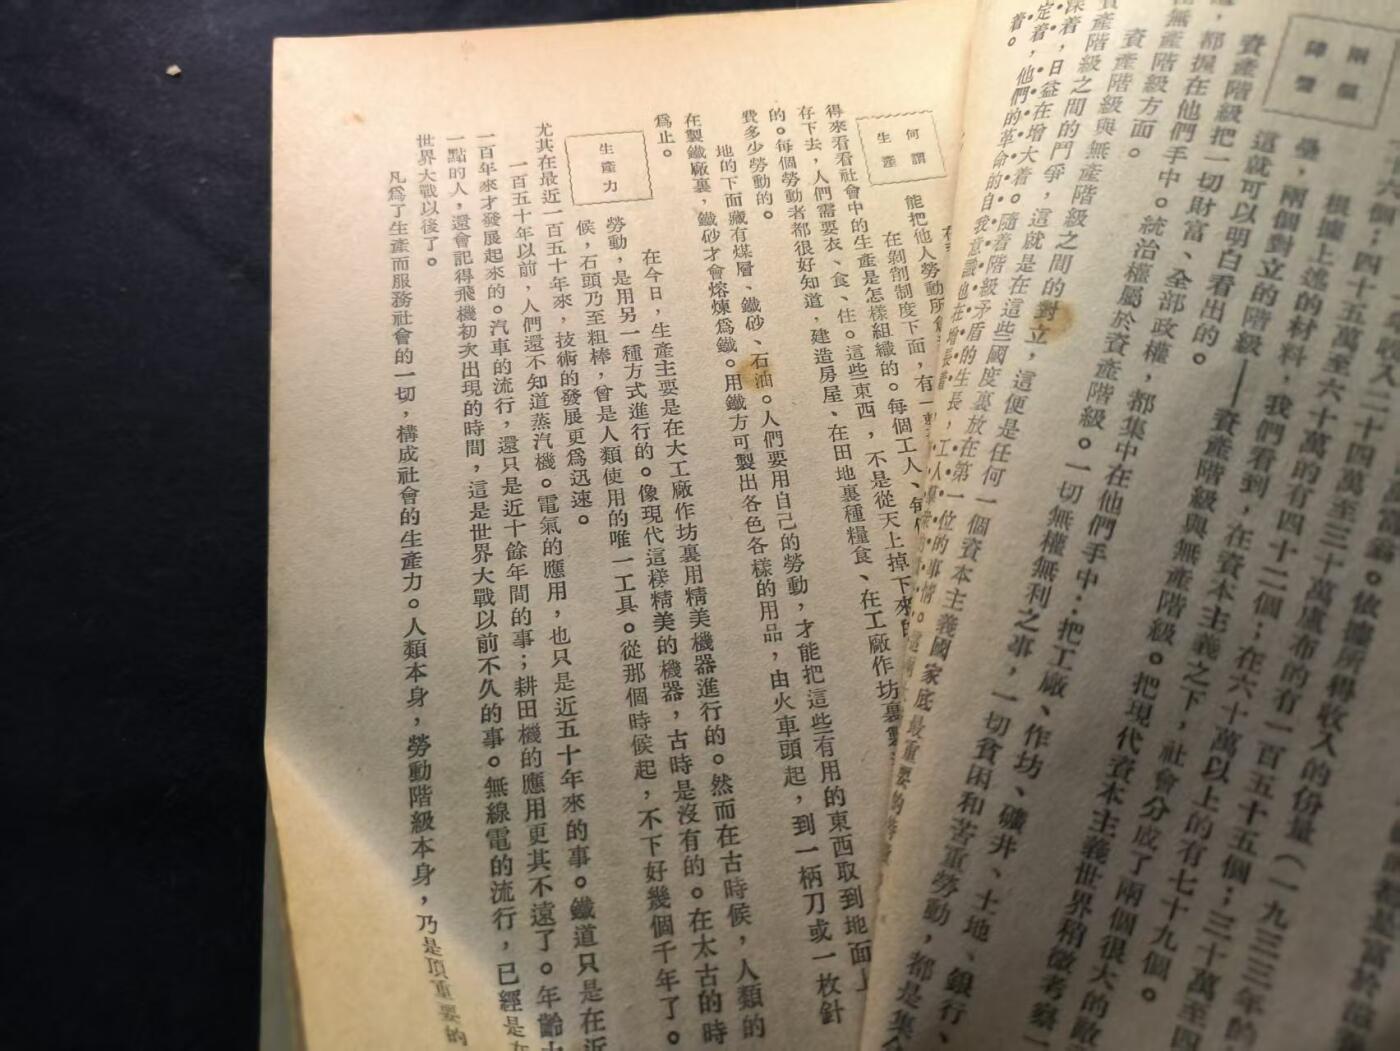 富翁。依據所得收入的份量（一九三三年的
收入二十四萬至三十萬盧布的有一百五十五個；三十萬至四
六個；四十五萬至六十萬的有四十二個；在六十萬以上的有七十九個。
兩個
陣營
根據上述的材料，我們看到，在資本主義之下，社會分成了兩個很大的敵
壘，兩個對立的階級——資產階級與無產階級。把現代資本主義世界稍微考察一
這就可以明白看出的。
資產階級把一切財富、全部政權，都集中在他們手中：把工廠、作坊、礦井、土地、銀行、
，都握在他們手中。統治權屬於資產階級。一切無權無利之事，一切貧困和苦重勞動，都是集
無產階級方面。
資產階級與無產階級之間的對立，這便是任何一個資本主義國家底最重要的
產階級之間的鬥爭，這就是在這些國度裏放在第一位的事情。
深着，日益在增大着。隨着階級矛盾的生長，工人
定着，他們的革命的自我意識也在增長着
着。
何謂
生產
能把他人勞動所
在剝削制度下面，有一
得來看看社會中的生產是怎樣組織的。每個工人、每
存下去，人們需要衣、食、住。這些東西，不是從天上掉下來的
的。每個勞動者都很好知道，建造房屋、在田地裏種糧食、在工廠作坊裏製
費多少勞動的。
地的下面藏有煤層、鐵砂、石油。人們要用自己的勞動，才能把這些有用的東西取到地面上
在製鐵廠裏，鐵砂才會熔煉爲鐵。用鐵方可製出各色各樣的用品，由火車頭起，到一柄刀或一枚針
爲止。
生產力
在今日，生產主要是在大工廠作坊裏用精美機器進行的。然而在古時候，人類的
勞動，是用另一種方式進行的。像現代這樣精美的機器，古時是沒有的。在太古的時
候，石頭乃至粗棒，曾是人類使用的唯一工具。從那個時候起，不下好幾個千年了。
尤其在最近一百五十年來，技術的發展更爲迅速。
一百五十年以前，人們還不知道蒸汽機。電氣的應用，也只是近五十年來的事。鐵道只是在近
一百年來才發展起來的。汽車的流行，還只是近十餘年間的事；耕田機的應用更其不遠了。年齡大
一點的人，還會記得飛機初次出現的時間，這是世界大戰以前不久的事。無線電的流行，已經是在
世界大戰以後了。
凡爲了生產而服務社會的一切，構成社會的生產力。人類本身，勞動階級本身，乃是頂重要的